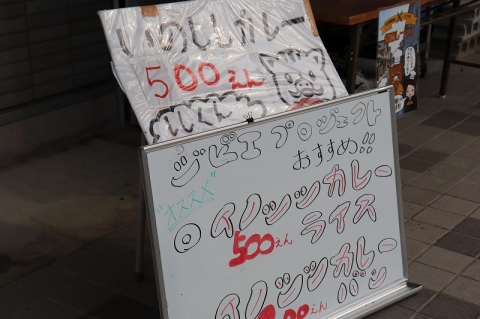 いのししカレー
500えん
ジビエプロジェクト
おすすめ!!
"オススメ"
◎イノシシカレー
500えん ライス
イノシシカレー
00えん パン